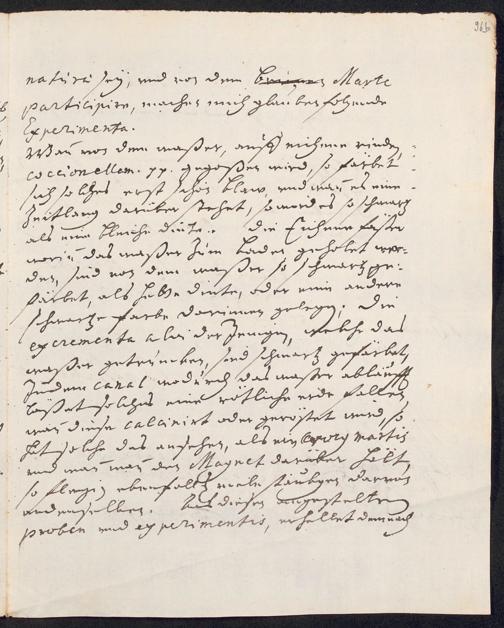 966
natura sey, und von dem Marte
participire, machen mich glauben folgende
Experimenta.
Wan von dem waßer, auff eichene rinden,
coccionellam. pp. gegoßen wird, so färbet
sich solches erst schön blaw, und wan es eine
Zeitlang darüber stehet, so wird es so schwartz
als eine bleiche dinte. Die Eichene fäßer
worin das waßer zum Bader geholet wor-
den, sind von dem waßer so schwartz ge-
färbet, als hette dinte, oder eine andere
schwartze farbe darinnen gelegen. Die
excrementa alvi derjenigen, welche das
waßer getruncken, sind schwartz gefärbet,
In dem canal wodurch das waßer ablaufft
läßet solches eine rötliche erde fallen
wan diese calcinirt oder geröstet wird, so
hat solche das ansehen, als ein martis
und wan man den Magnet darüber helt,
so fliegen ebenfalls viele stäubgen darvon
an denselben. Aus diesen angestelten
proben und experimentis, erhellet demnach